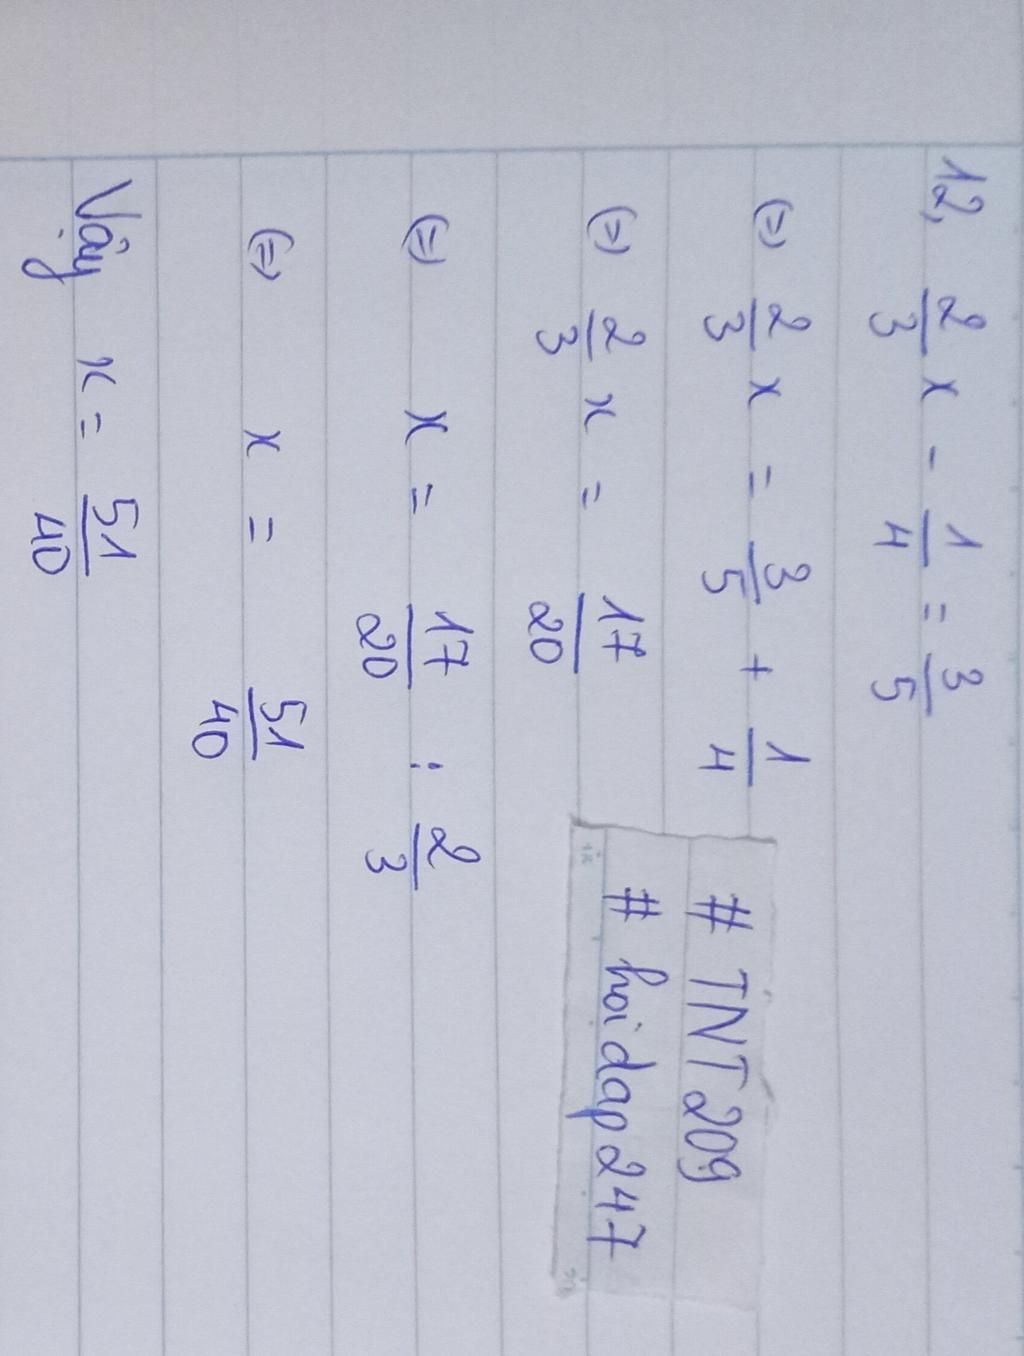 12, 2/3 x - 1/4 = 3/5
(=) 2/3 x = 3/5 + 1/4
(=) 2/3 x = 17/20
(=) x = 17/20 : 2/3
(=) x = 51/40
Vậy x = 51/40
# TNT209
# hoidap247